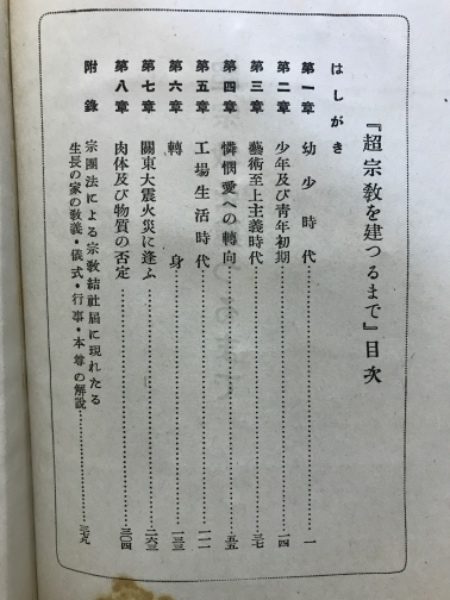 『超宗教を建つるまで』目次
はしがき
第一章 幼少時代 一
第二章 少年及び青年初期 一四
第三章 藝術至上主義時代 三七
第四章 憐憫愛への轉向 五五
第五章 工場生活時代 一一一
第六章 轉身 一三三
第七章 關東大震火災に逢ふ 二六三
第八章 肉体及び物質の否定 三〇四
附錄 宗團法による宗教結社屆に現れたる
生長の家の教義・儀式・行事・本尊の解說